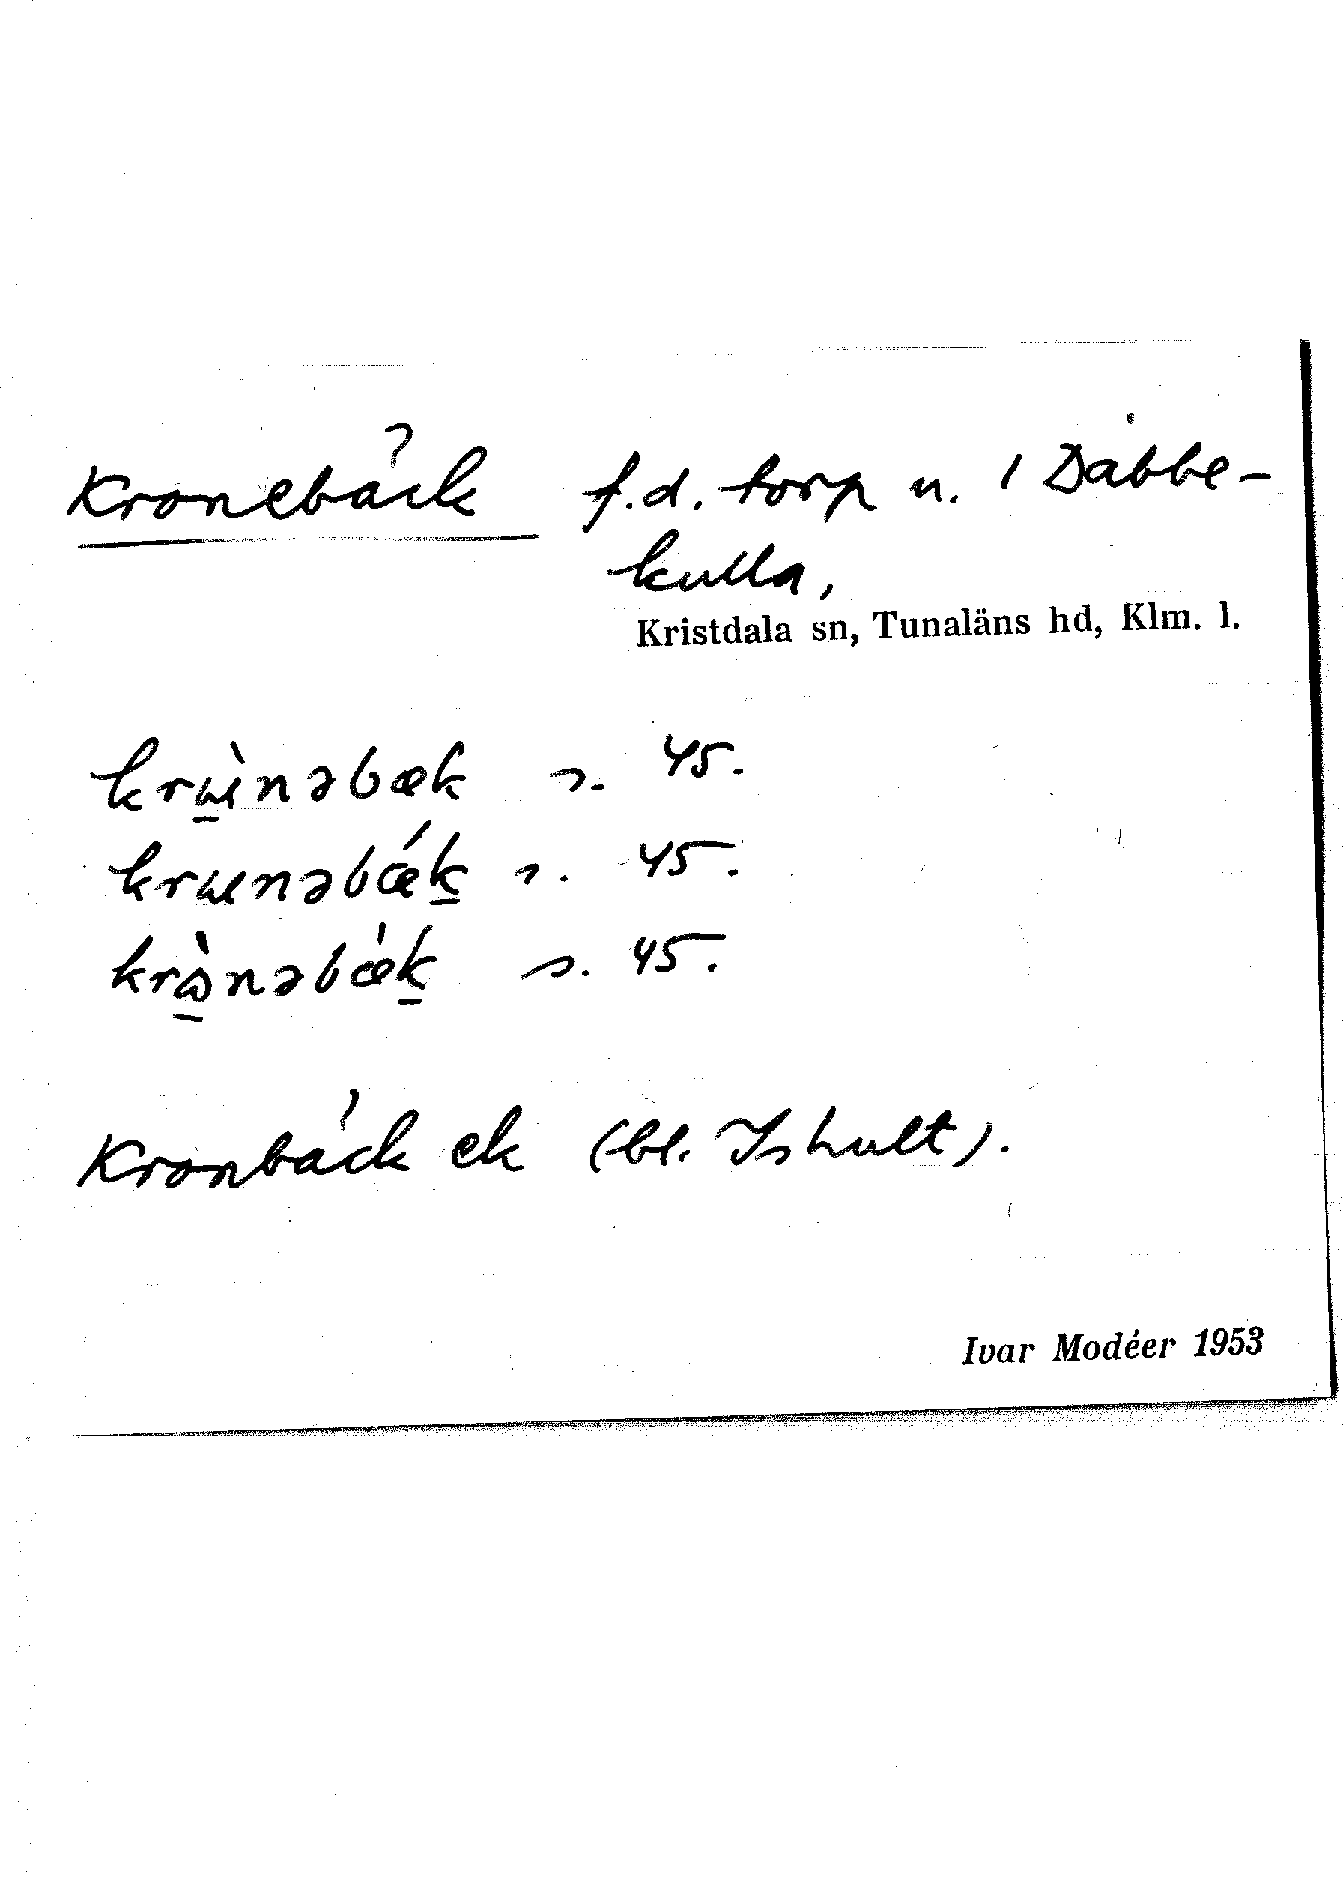 Kronebäck f.d. torp u. / Dåbbe-
kulla,
Kristdala sn, Tunaläns hd, Klm. l.
krɯ̱̀nəbæk s. 45.
krɯnəbǽḵ s. 45.
krⱺ̱̀nəbǽḵ s. 45.
Kronbäck ek (bl. Ishult).
Ivar Modéer 1953